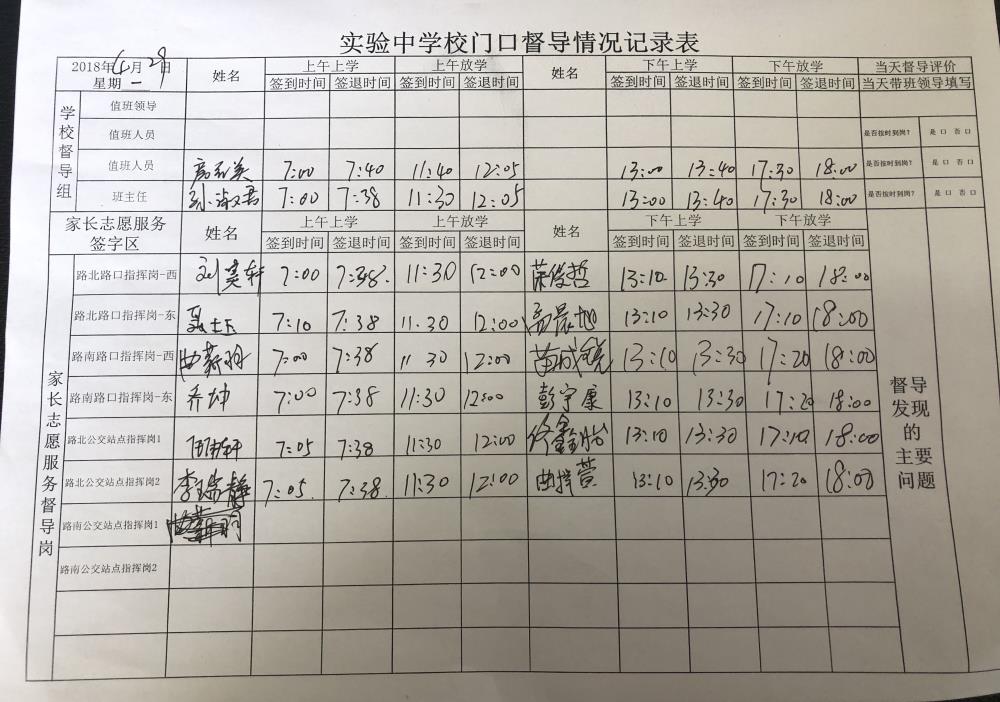 实验中学校门口督导情况记录表
2018年 月 29日 星期 一 姓名 上午上学 上午放学 姓名 下午上学 下午放学 当天督导评价
签到时间 签退时间 签到时间 签退时间 签到时间 签退时间 签到时间 签退时间 当天带班领导填写
学校督导组
值班领导
值班人员 是否按时到岗? 是 口 否 口
值班人员 7:00 7:40 11:40 12:05 13:00 13:40 17:30 18:00 是否按时到岗? 是 口 否 口
班主任 7:00 7:38 11:30 12:05 13:00 13:40 17:30 18:00 是否按时到岗? 是 口 否 口
家长志愿服务签字区 姓名 上午上学 上午放学 姓名 下午上学 下午放学
签到时间 签退时间 签到时间 签退时间 签到时间 签退时间 签到时间 签退时间
家长志愿服务督导岗
路北路口指挥岗-西 7:00 7:38. 11:30 12:00 荣俊哲 13:10 13:30 17:10 18:00
路北路口指挥岗-东 7:10 7:38 11:30 12:00 高晨旭 13:10 13:30 17:10 18:00
路南路口指挥岗-西 7:00 7:38 11 30 12:00 13:10 13:30 17:20 18:00
路南路口指挥岗-东 乔坤 7:00 7:38 11:30 12:00 彭宇康 13:10 13:30 17:20 18:00
路北公交站点指挥岗1 7:05 7:38 11:30 12:00 13:10 13:30 17:10 18:00
路北公交站点指挥岗2 李瑞静 7:05. 7:38. 11:30 12:00 13:10 13:30 17:20 18:00
路南公交站点指挥岗1
路南公交站点指挥岗2
督导发现的主要问题